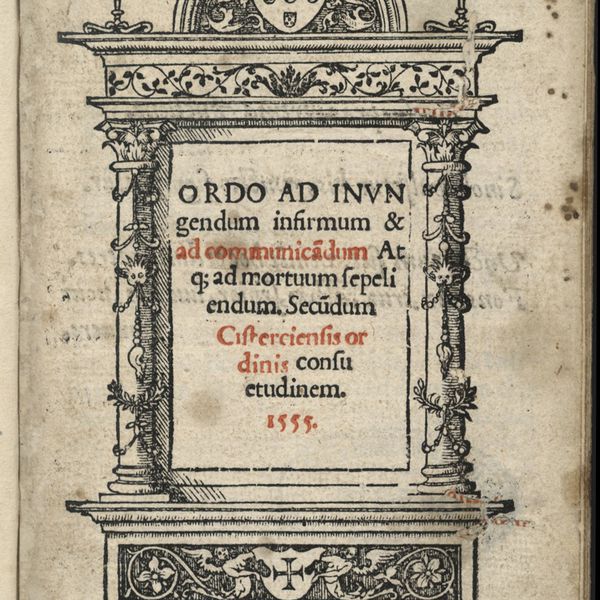 ORDO AD INVN
gendum infirmum &
ad communicãdum At
q; ad mortuum ſepeli
endum. Secũdum
Ciſterciensis or
dinis conſu
etudinem.
1555.